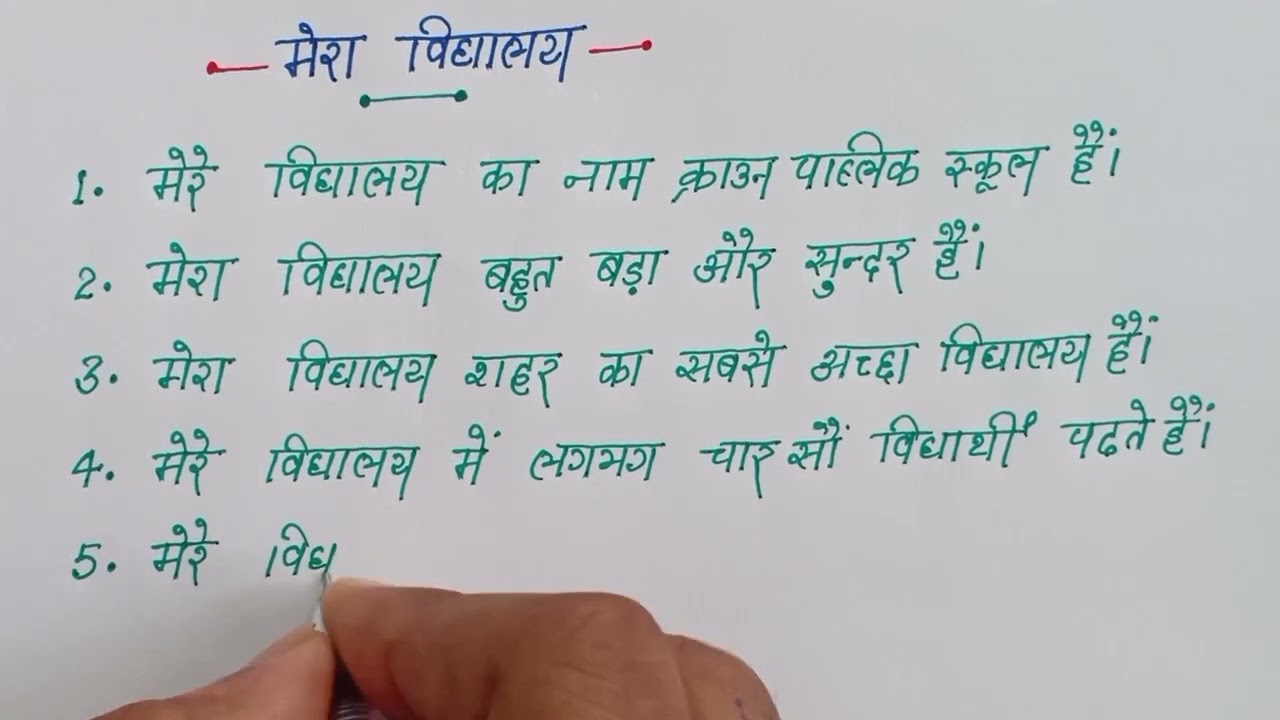 मेरा विद्यालय
1. मेरे विद्यालय का नाम क्राउन पाब्लिक स्कूल हैं।
2. मेरा विद्यालय बहुत बड़ा और सुन्दर हैं।
3. मेरा विद्यालय शहर का सबसे अच्छा विद्यालय हैं।
4. मेरे विद्यालय में लगभग चार सौं विद्यार्थी पढते हैं।
5. मेरे विद्य